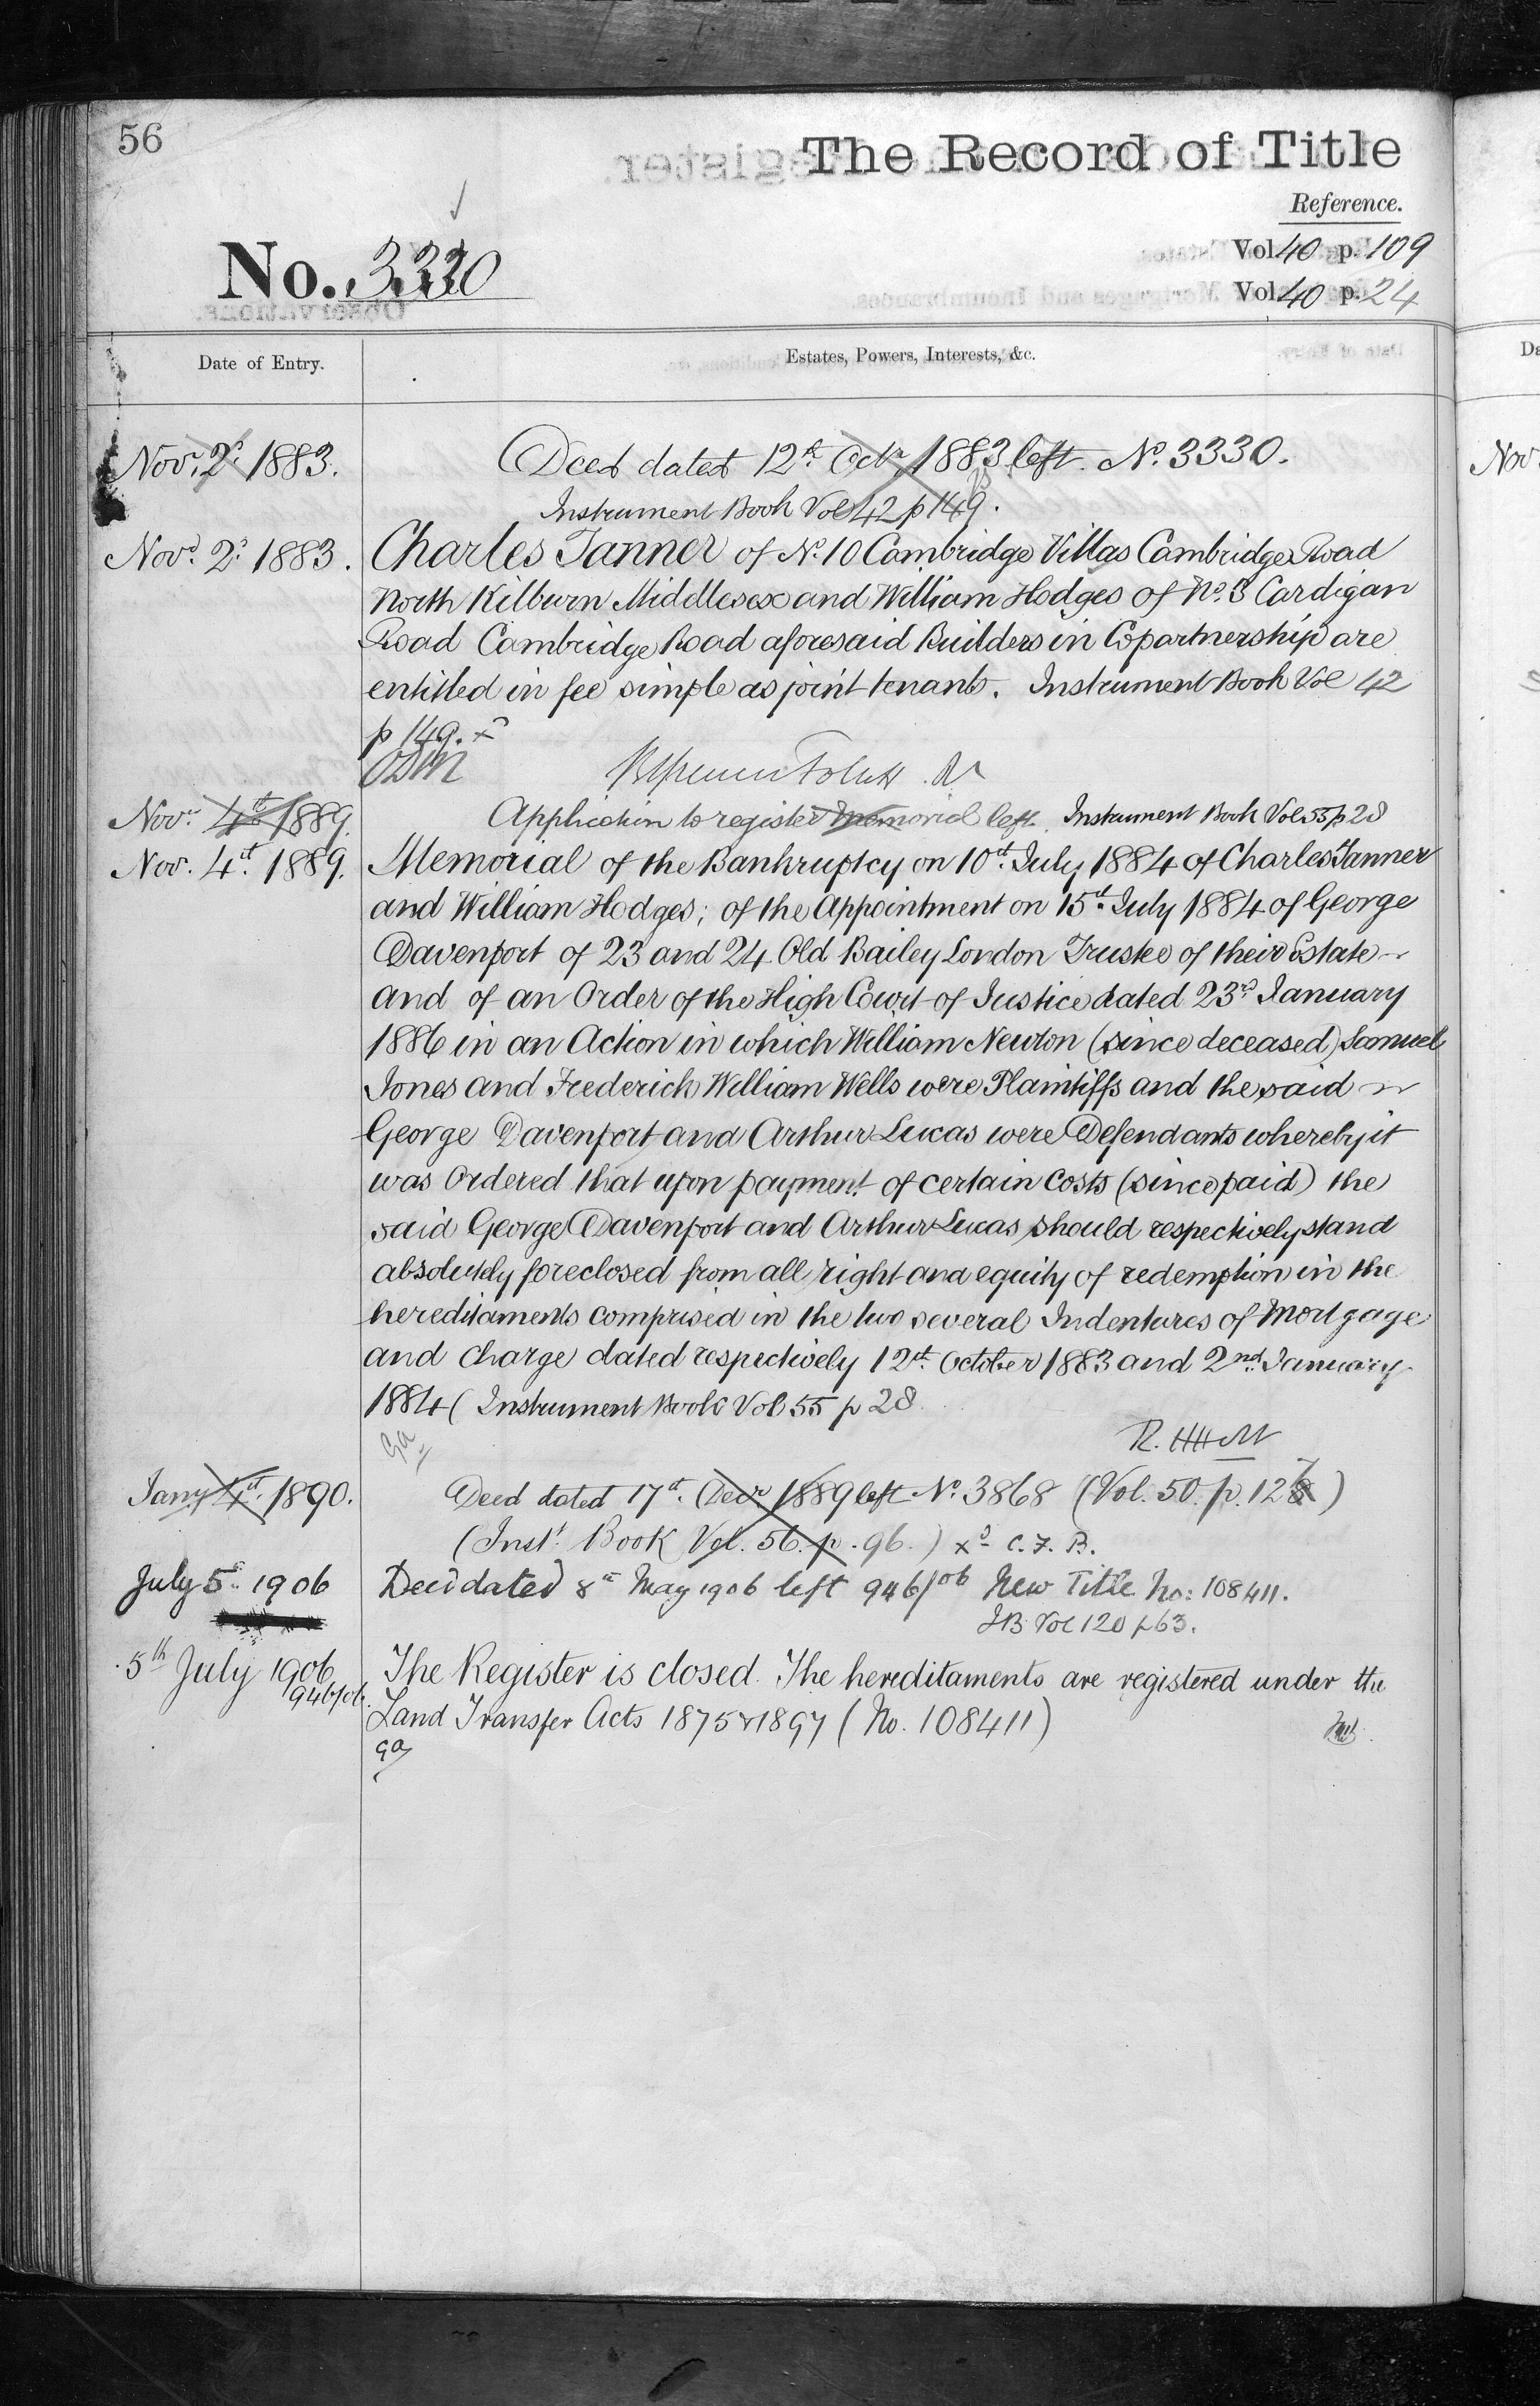 56
The Record of Title
Reference.
No. 3330
Vol. 40 p. 109
Vol. 40 p. 24
Date of Entry.
Estates, Powers, Interests, &c.
Novr. 2d. 1883.
Deed dated 12th. Octr. 1883 left. No. 3330.
Instrument Book Vol 42 p 149.
Novr. 2d. 1883.
Charles Tanner of No. 10 Cambridge Villas Cambridge Road
North Kilburn Middlesex and William Hodges of No. 3 Cardigan
Road Cambridge Road aforesaid Builders in Copartnership are
entitled in fee simple as joint tenants. Instrument Book Vol 42
p 149. xd
Novr. 4th 1889.
Application to register Memorial left. Instrument Book Vol 55 p 28
Nov. 4th. 1889.
Memorial of the Bankruptcy on 10th. July 1884 of Charles Tanner
and William Hodges; of the Appointment on 15th. July 1884 of George
Davenport of 23 and 24 Old Bailey London Trustee of their Estate
and of an Order of the High Court of Justice dated 23rd January
1886 in an Action in which William Newton (since deceased) Samuel
Jones and Frederick William Wells were Plaintiffs and the said
George Davenport and Arthur Lucas were Defendants whereby it
was Ordered that upon payment of certain Costs (since paid) the
said George Davenport and Arthur Lucas should respectively stand
absolutely foreclosed from all right and equity of redemption in the
hereditaments comprised in the two several Indentures of Mortgage
and Charge dated respectively 12th. October 1883 and 2nd. January
1884 ( Instrument Book Vol 55 p 28
Jany 4th. 1890.
Deed dated 17th. Decr 1889 left No. 3868 (Vol. 50. p. 127)
(Inst. Book Vol. 56. p. 96.) xd C. F. B.
July 5th 1906
Deed dated 8th May 1906 left 946/06 New Title No: 108411.
IB Vol 120 p 63.
5th July 1906
946/06.
The Register is closed. The hereditaments are registered under the
Land Transfer Acts 1875 & 1897 (No. 108411)
ga